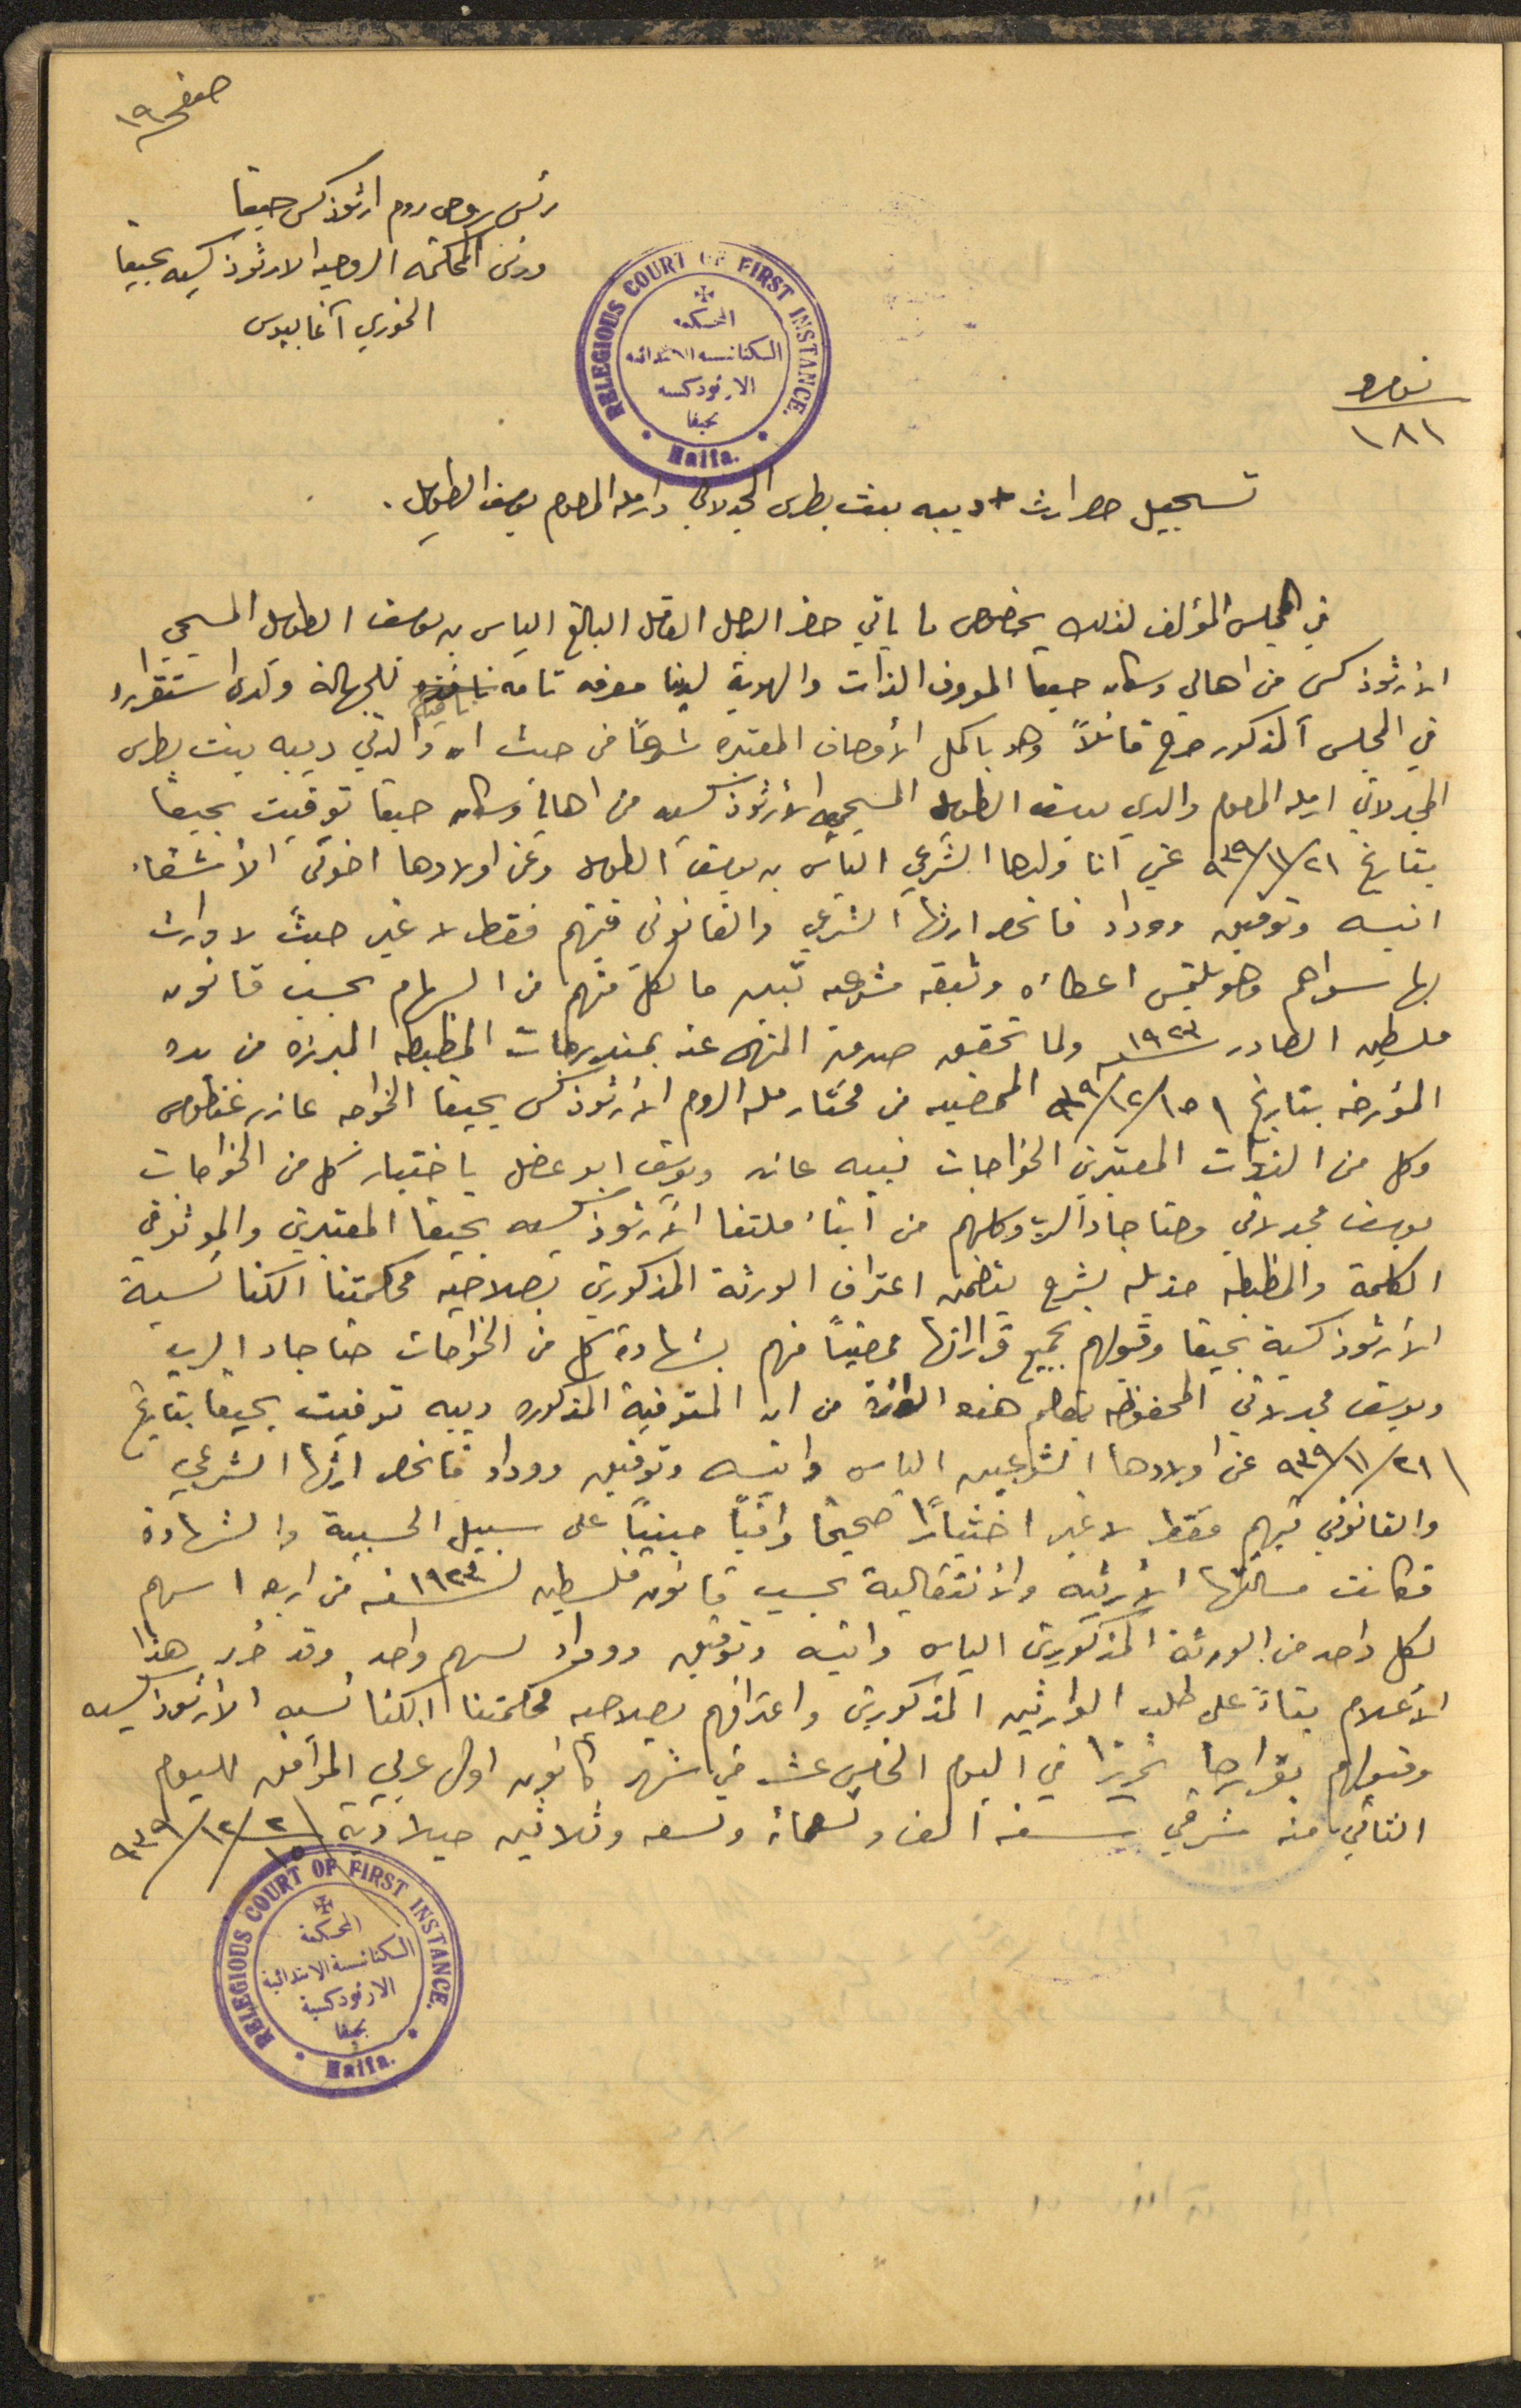 صفحة ١٩
رئيس روحي روم ارثوذكس حيفا
ورئيس المحكمة الروحيه الارثوذكسيه بحيفا
الخوري آغابيوس
RELEGIOUS COURT OF FIRST INSTANCE.
المحكمة
الكنائسية الابتدائية
الارثوذكسية
بحيفا
Haifa.
نومرو
١٨١
تسجيل حصر ارث ديبه بنت بطرس المجدلاني وارملة المرحوم يوسف الطويل.
في المجلس المؤلف لذلك بخصوص ما يأتي حضر الرجل العاقل البالغ الياس بن يوسف الطويل المسيحي
الأرثوذكسي من اهالي وسكان حيفا المعروف الذات والهوية لدينا معرفه تامه نافية للجهالة ولدى استقراره
في المجلس المذكور صرح قائلاً وهو باكمل الأوصاف المعتبره شرعاً من حيث ان والدتي ديبه بنت بطرس
المجدلاني ارملة المرحوم والدي يوسف الطويل المسيحيه الأرثوذكسيه من اهالي وسكان حيفا توفيت بحيفا
بتاريخ ٢١/١١/٩٣٩ عني انا ولدها الشرعي الياس بن يوسف الطويل وعن اولادها اخوتي الأشقاء
انيسه وتوفيق ووداد فانحصر ارثها الشرعي والقانوني فيهم فقط لا غير حيث لا وارث
لها سواهم وهو يلتمس اعطاءه وثيقه شرعيه تبين ما لكل منهم من السهام بحسب قانون
فلسطين الصادر سنة ١٩٢٣ ولما تحقق صدق المنهى عنه بمندرجات المظبطه المبرزه من يده
المؤرخه بتاريخ ١٥/١٢/٩٣٩ الممضيه من مختار ملة الروم الأرثوذكس بحيفا الخواجه عازر غنطوس
وكل من الذوات المعتبرين الخواجات نبيه عازر ويوسف ابو عضل باختيار كل من الخواجات
يوسف مجدلاني وحنا جاد الرب وكلهم من ابناء ملتنا الأرثوذكسيه بحيفا المعتبرين والموثوقي
الكلمة والمظبطه مذيله بشرح يتضمن اعتراف الورثة المذكورين بصلاحية محكمتنا الكنائسية
الأرثوذكسية بحيفا وقبولهم بجميع قراراتها ممضياً منهم بشهادة كل من الخواجات حنا جاد الرب
ويوسف مجدلاني المحفوظه بقلم هذه الدائرة من ان المتوفية المذكوره ديبه توفيت بحيفا بتاريخ
٢١/١١/٩٣٩ عن اولادها الشرعيين الياس وانيسه وتوفيق ووداد فانحصر ارثها الشرعي
والقانوني فيهم فقط لا غير اختياراً صحيحاً وافياً مبنياً على سبيل الحسبية والشهادة
فكانت مسألتها الأرثيه والأنتقالية بحسب قانون فلسطين لسنة ١٩٢٣ من اربعة اسهم
لكل واحد من الورثة المذكورين الياس وانيسه وتوفيق ووداد لسهم واحد وقد حُرر هذا
الأعلام بناءً على طلب الوارثين المذكورين واعترافهم بصلاحيه محكمتنا الكنائسيه الارثوذكسيه
وقبولهم بقراراتها تحريراً في اليوم الخامس عشر من شهر كانون اول غربي الموافق لليوم
الثاني منه شرقي سنة الف وتسعمائة وتسعه وثلاثين ميلادية ٢/١٢/٩٣٩
١٥
RELEGIOUS COURT OF FIRST INSTANCE.
المحكمة
الكنائسية الابتدائية
الارثوذكسية
بحيفا
Haifa.